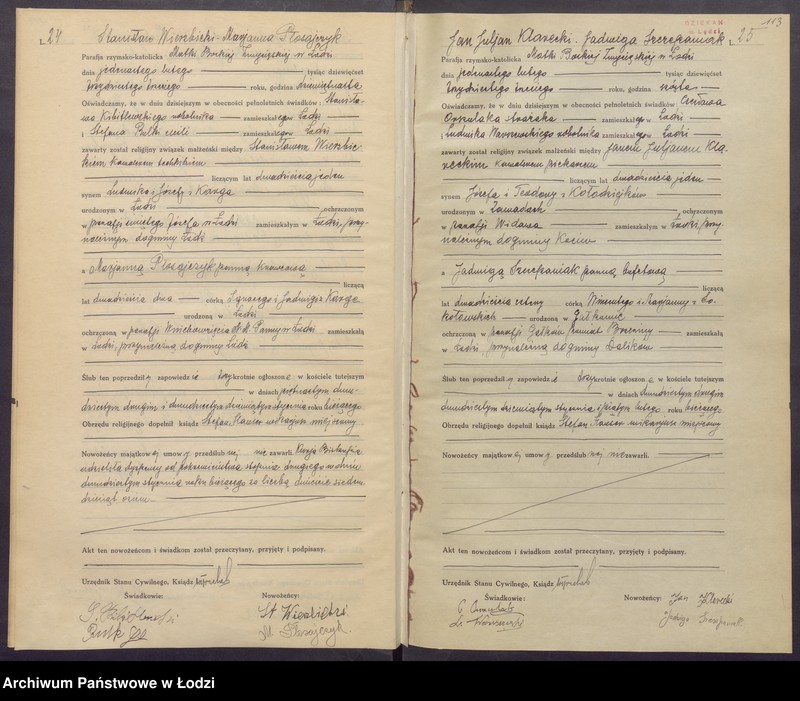 24 Stanisław Wierzbicki - Marjanna Płosajczyk
Parafja rzymsko-katolicka Matki Boskiej Zwycięskiej w Łodzi
dnia jedenastego lutego tysiąc dziewięćset
trzydziestego trzeciego roku, godzina dziewiętnasta
Oświadczamy, że w dniu dzisiejszym w obecności pełnoletnich świadków: Stanisła-
wa robotnika zamieszkałego w Łodzi
i Stefana zamieszkałego w Łodzi
zawarty został religijny związek małżeński między Stanisławem Wierzbic-
kim kawalerem
liczącym lat dwadzieścia jeden
synem Ludwika i Józefy z Karga
urodzonym w Łodzi ochrzczonym
w parafji świętego Józefa w Łodzi zamieszkałym w Łodzi, przy-
należnym do gminy Łódź
a Marjanną Płosajczyk panną krawcową
liczącą
lat dwadzieścia dwa córką Ignacego i Jadwigi z Karga
urodzoną w Łodzi
ochrzczoną w parafji Wniebowzięcia N. M. Panny w Łodzi zamieszkałą
w Łodzi, przynależną do gminy Łódź
Ślub ten poprzedziły zapowiedzie trzykrotnie ogłoszone w kościele tutejszym
w dniach piętnastym dwu-
dziestym drugim i dwudziestym dziewiątym stycznia roku bieżącego
Obrzędu religijnego dopełnił ksiądz Stefan wikarjusz miejscowy
Nowożeńcy majątkowej umowy przedślubnej nie zawarli. Kurja Biskupia
udzieliła dyspensy od pokrewieństwa stopnia drugiego w dniu
dwudziestym stycznia roku bieżącego za liczbą dwieście siedem-
dziesiąt osiem.
Akt ten nowożeńcom i świadkom został przeczytany, przyjęty i podpisany.
Urzędnik Stanu Cywilnego, Ksiądz
Świadkowie: Nowożeńcy:
St. Wierzbicki
M. Płosajczyk
113
DZIEKAN
25
Jan Juljan Klarecki - Jadwiga Szczepaniak
Parafja rzymsko-katolicka Matki Boskiej Zwycięskiej w Łodzi
dnia jedenastego lutego tysiąc dziewięćset
trzydziestego trzeciego roku, godzina szósta
Oświadczamy, że w dniu dzisiejszym w obecności pełnoletnich świadków:
zamieszkałego w Łodzi
i Ludwika robotnika zamieszkałego w Łodzi
zawarty został religijny związek małżeński między Janem Juljanem Kla-
reckim kawalerem piekarzem
liczącym lat dwadzieścia jeden
synem Józefa i Teodory z Kołodziejków
urodzonym w Zawadach ochrzczonym
w parafji Widawa zamieszkałym w Łodzi, przy-
należnym do gminy
a Jadwigą Szczepaniak panną bufetową
liczącą
lat dwadzieścia cztery córką Wincentego i Marjanny z So-
kołowskich urodzoną w
ochrzczoną w parafji powiat Brzeziny zamieszkałą
w Łodzi, przynależną do gminy Dalików
Ślub ten poprzedziły zapowiedzie trzykrotnie ogłoszone w kościele tutejszym
w dniach dwudziestym drugim
dwudziestym dziewiątym stycznia i piątym lutego roku bieżącego
Obrzędu religijnego dopełnił ksiądz Stefan wikarjusz miejscowy
Nowożeńcy majątkowej umowy przedślubnej nie zawarli.
Akt ten nowożeńcom i świadkom został przeczytany, przyjęty i podpisany.
Urzędnik Stanu Cywilnego, Ksiądz
Świadkowie: Nowożeńcy: Jan Klarecki
Jadwiga Szczepaniak
Archiwum Państwowe w Łodzi